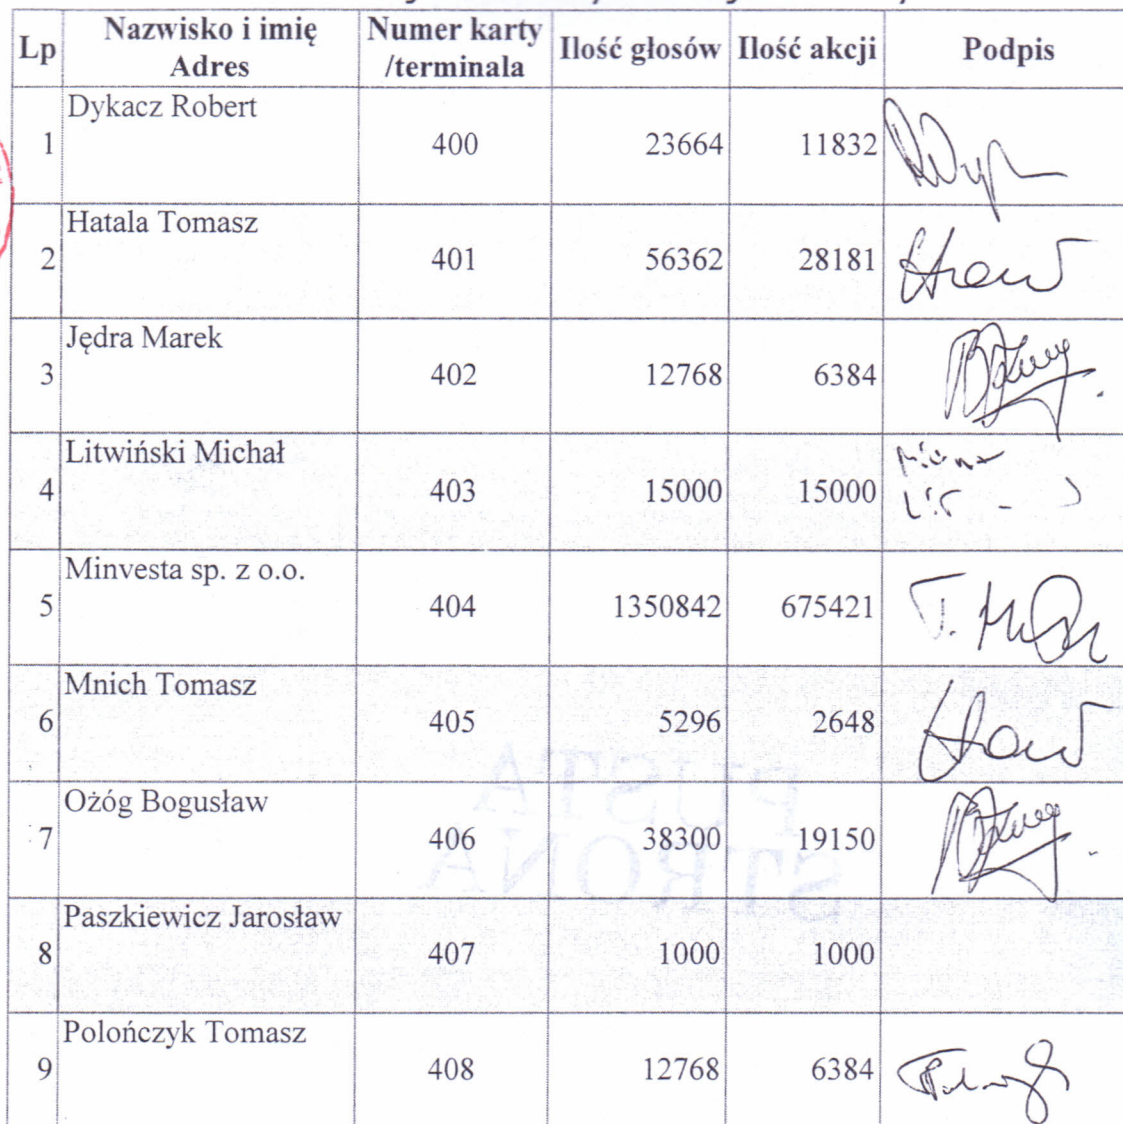 Lp Nazwisko i imię Adres Numer karty /terminala Ilość głosów Ilość akcji Podpis
Dykacz Robert
1 400 23664 11832
Hatala Tomasz
2 401 56362 28181
Jędra Marek
3 402 12768 6384
Litwiński Michał
4 403 15000 15000
Minvesta sp. z o.o.
5 404 1350842 675421
Mnich Tomasz
6 405 5296 2648
Ożóg Bogusław
7 406 38300 19150
Paszkiewicz Jarosław
8 407 1000 1000
Polończyk Tomasz
9 408 12768 6384
PUSTA
STRONA